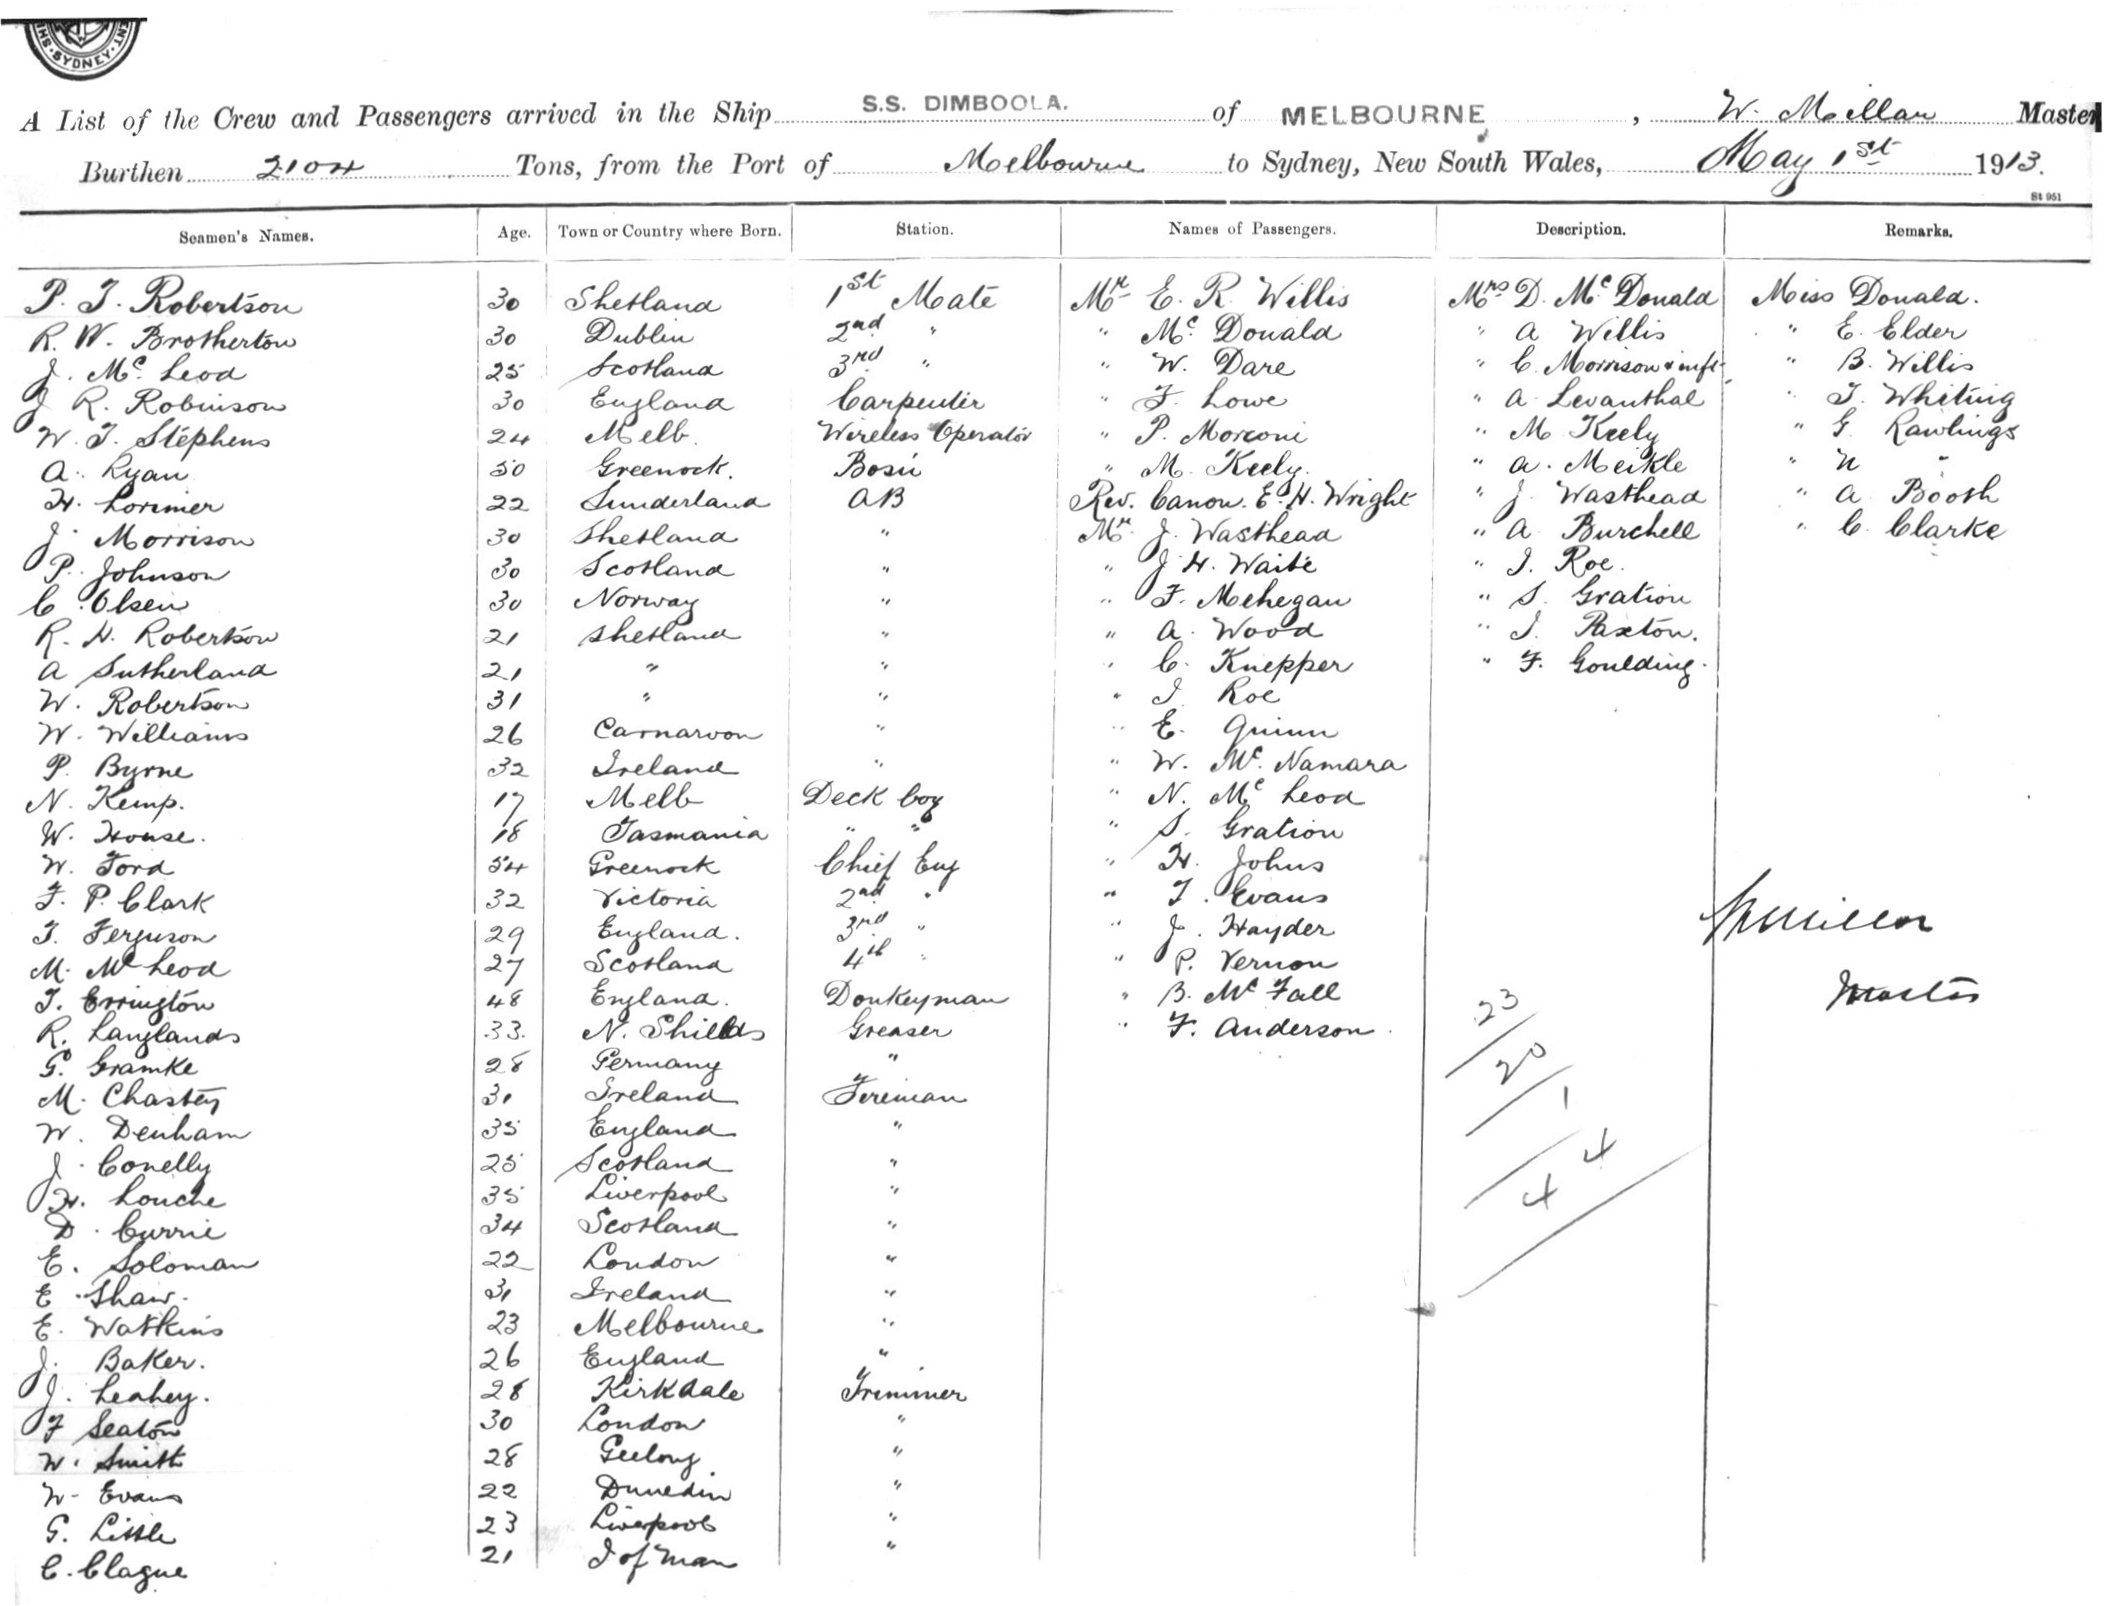 SYDNEY
A List of the Crew and Passengers arrived in the Ship S.S. DIMBOOLA. of MELBOURNE, W. Millar Master
Burthen 2104 Tons, from the Port of Melbourne to Sydney, New South Wales, May 1st 1913.
St 951
Seamen's Names. Age. Town or Country where Born. Station. Names of Passengers. Description. Remarks.
P. T. Robertson 30 Shetland 1st Mate Mr E. R. Willis Mrs D. McDonald Miss Donald.
R. W. Brotherton 30 Dublin 2nd " " McDonald " A Willis " E. Elder
J. McLeod 25 Scotland 3rd " " W. Dare " C. Morrison & inft " B. Willis
J R. Robinson 30 England Carpenter " F. Lowe " A. Levanthal " T. Whiting
W. T. Stephens 24 Melb. Wireless Operator " P. Morconi " M Keely " G. Rawlings
A. Ryan 50 Greenock. Bosn " M. Keely. " A. Meikle " N "
H. Lorimer 22 Sunderland AB Rev. Canon. E. H. Wright " J. Wasthead " A Booth
J. Morrison 30 Shetland " Mr. J. Wasthead " A Burchell " C. Clarke
P. Johnson 30 Scotland " " J H. Waite " I. Roe.
C. Olsen 30 Norway " " F. Mehegan " S. Gration
R. H. Robertson 21 Shetland " " A. Wood " I. Paxton.
A Sutherland 21 " " " C. Knepper " F. Goulding.
W. Robertson 31 " " " I Roe
W. Williams 26 Carnarvon " " E. Quinn
P. Byrne 32 Ireland " " W. McNamara
N. Kemp. 17 Melb Deck boy " N. McLeod
W. House. 18 Tasmania " " " S. Gration
W. Ford 54 Greenock Chief Eng " H. Johns
F. P. Clark 32 Victoria 2nd " " T. Evans
T. Ferguson 29 England. 3rd " " J. Hayder
M. McLeod 27 Scotland 4th " " P. Vernon
T. Errington 48 England. Donkeyman " B. McFall
R. Langlands 33. N. Shields Greaser " F. Anderson
G. Gramke 28 Germany "
M. Chastey 31 Ireland Fireman
W. Denham 35 England "
J. Conelly 25 Scotland "
H. Louche 35 Liverpool "
D. Currie 34 Scotland "
E. Soloman 22 London "
E Shaw. 31 Ireland "
E. Watkins 23 Melbourne "
J. Baker. 26 England "
J. Leahey. 28 Kirkdale Trimmer
F Seaton 30 London "
W. Smith 28 Geelong "
W. Evans 22 Dunedin "
G. Little 23 Liverpool "
C. Clague 21 I of Man "
W Millar
Master
23
20
1
4
4